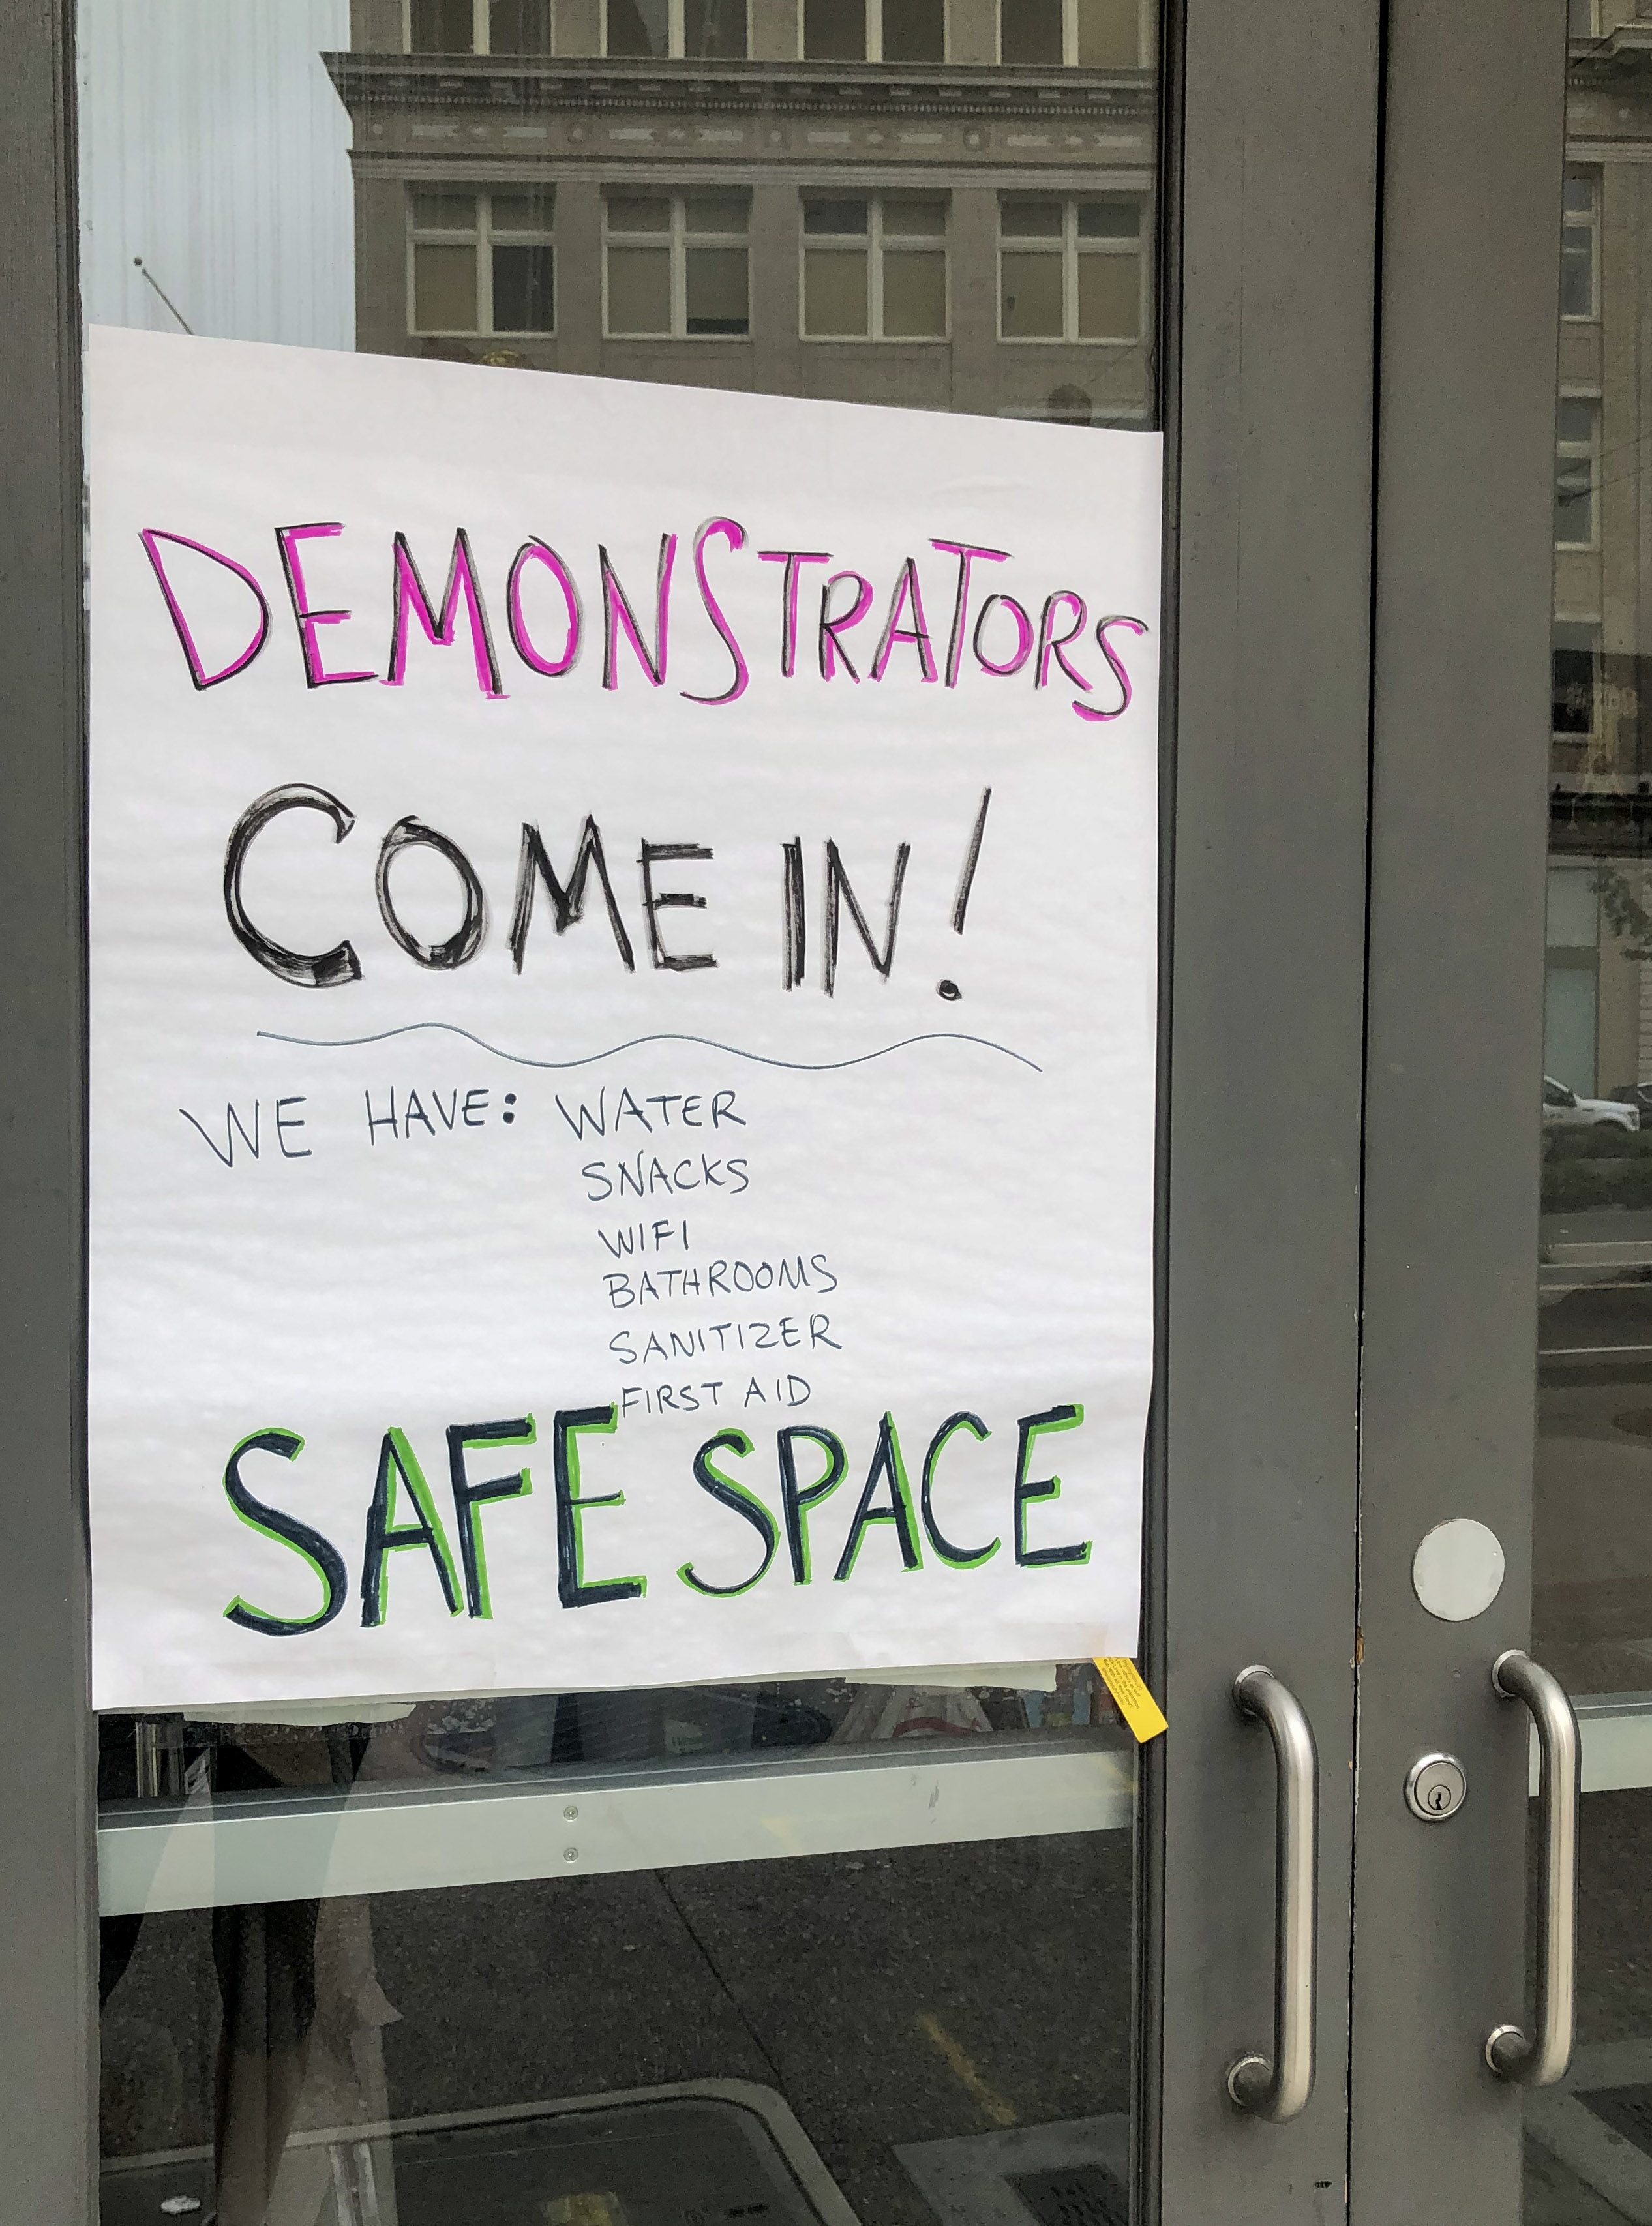 DEMONSTRATORS
COME IN!
WE HAVE: WATER
SNACKS
WIFI
BATHROOMS
SANITIZER
FIRST AID
SAFE SPACE